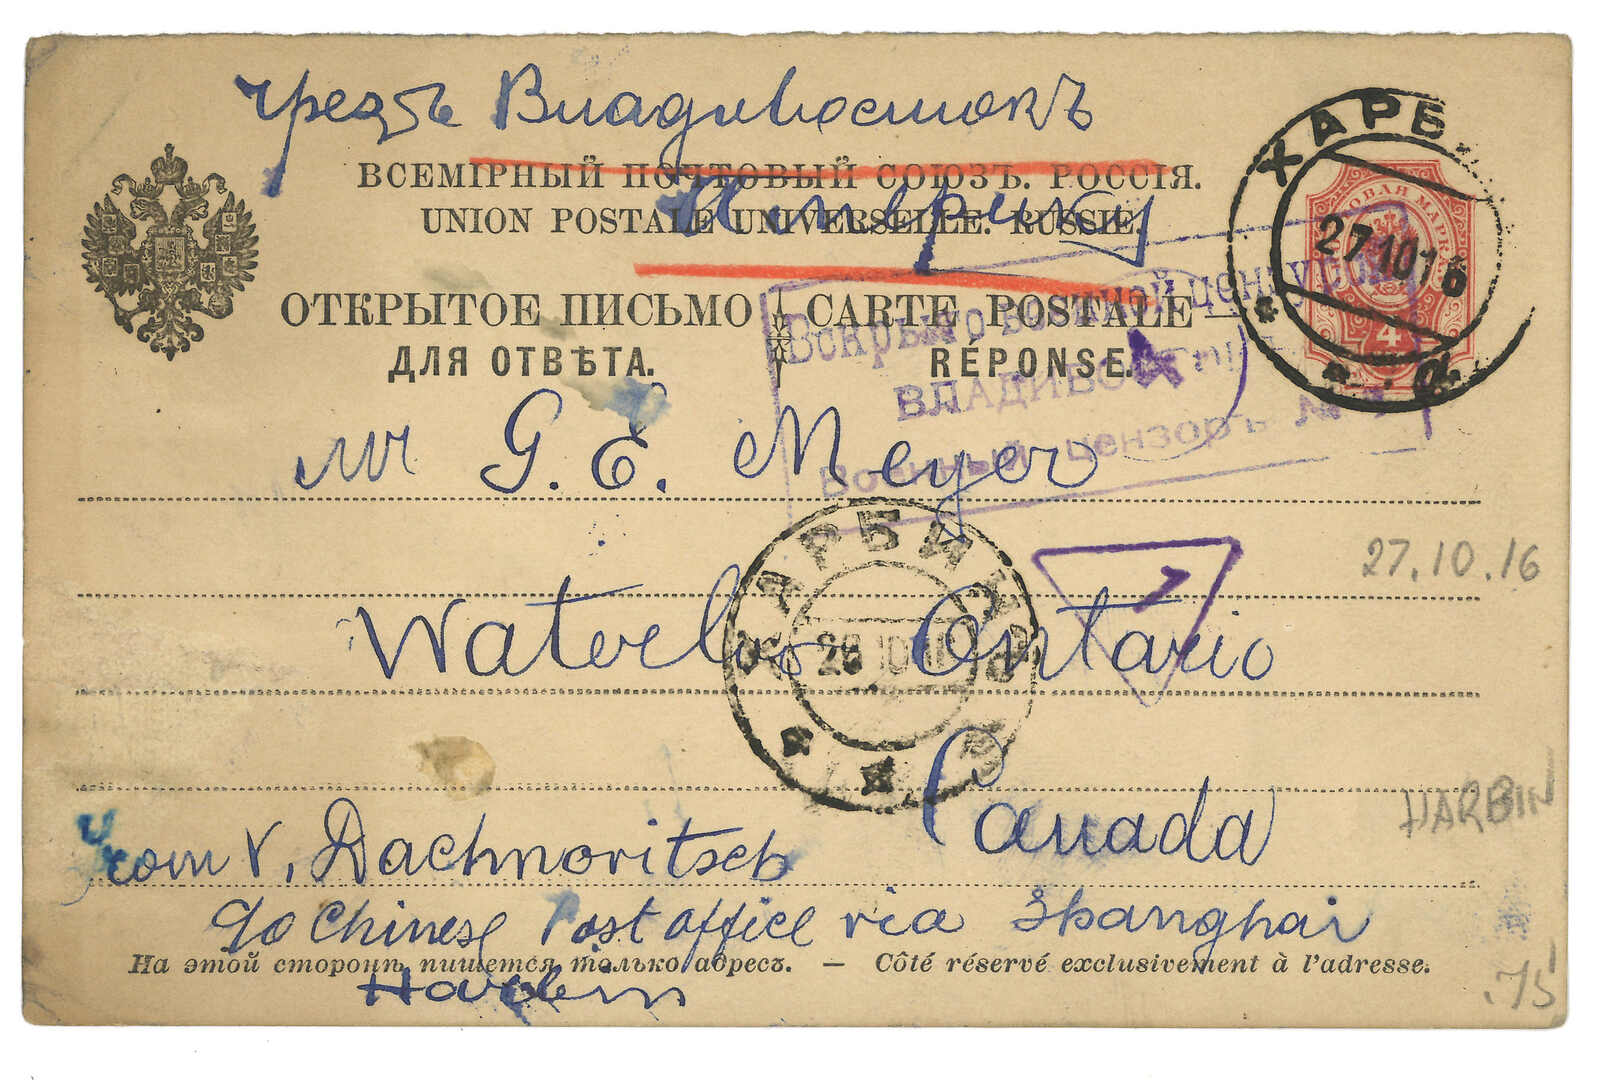 чрезъ Владивостокъ
ВСЕМІРНЫЙ ПОЧТОВЫЙ СОЮЗЪ. РОССІЯ.
Америку
UNION POSTALE UNIVERSELLE. RUSSIE.
ОТКРЫТОЕ ПИСЬМО CARTE POSTALE
ДЛЯ ОТВѢТА. RÉPONSE.
ХАРБ
27 10 16
4
Вскрыто военной цензурой
ВЛАДИВО
Военный цензоръ №
Mr G. E. Meyer
ХАРБИНЪ
27.10.16
Waterloo Ontario
Canada
HARBIN
from V. Dachnoritsch
c/o Chinese Post office via Shanghai
На этой сторонѣ пишется только адресъ. — Côté réservé exclusivement à l'adresse.
Harbin
.75